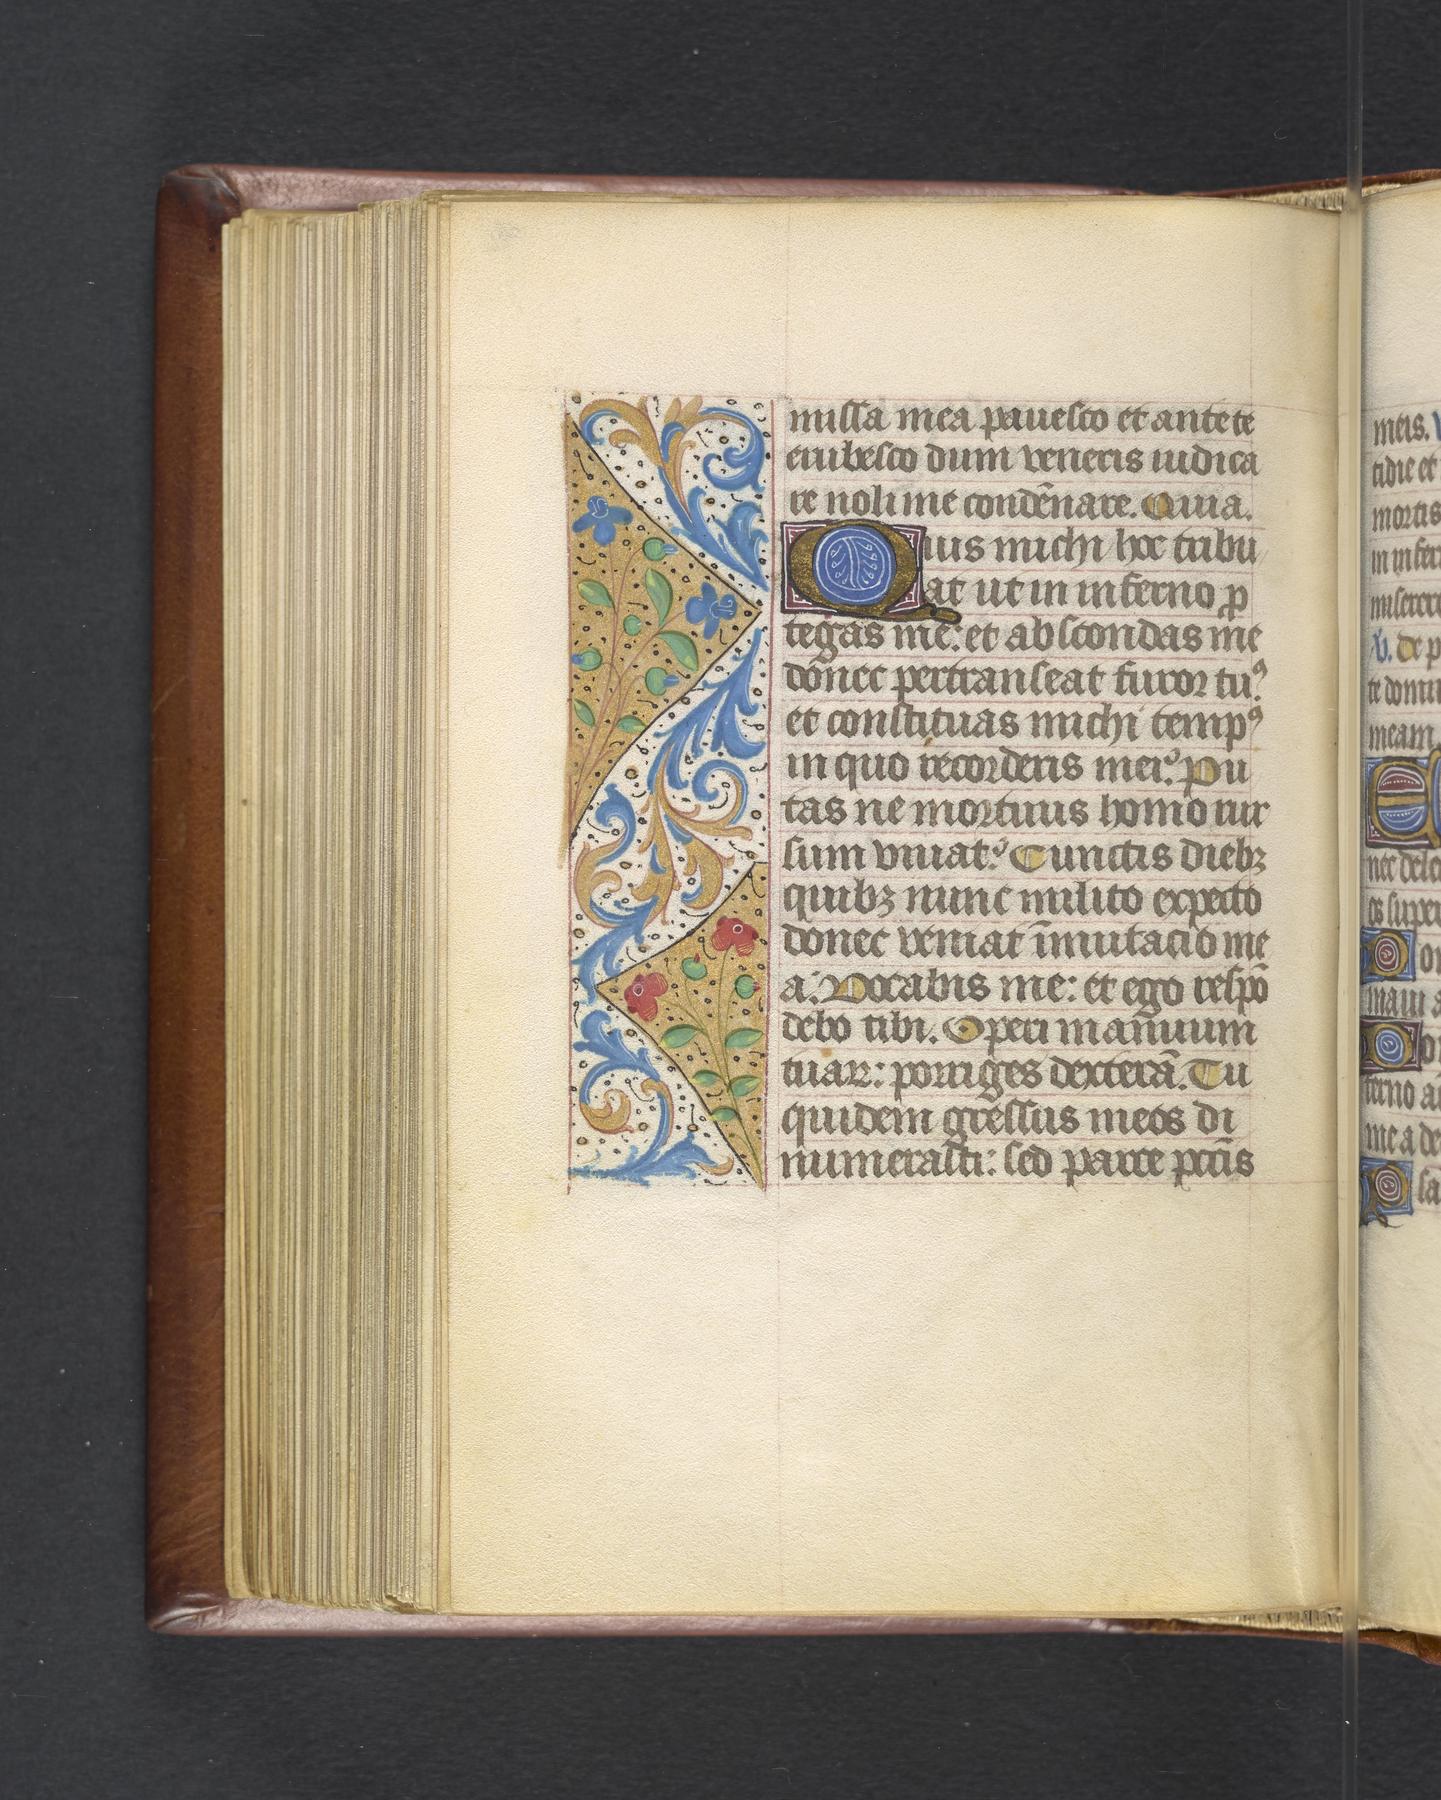 missa mea pauesco et ante te
erubesco dum veneris iudica
re noli me condēnare. Quia.
Quis michi hoc tribu
at ut in inferno ꝓ
tegas me: et abscondas me
donec pertranseat furor tuꝰ
et constituas michi tempꝰ
in quo recorderis mei? Pu
tas ne mortuus homo rur
sum viuat? Cunctis diebꝫ
quibꝫ nunc milito expecto
donec veniat īmutacio me
a. Vocabis me: et ego respō
debo tibi. Operi manuum
tuaꝝ: porriges dexterā. Tu
quidem gressus meos di
numerasti: sed parce pctīs
meis.
tidie et
mortis
in infer
miserere
V. De p
te domi
meam
nec dele
os super
Dom
manu a
Dom
ferno a
me a de